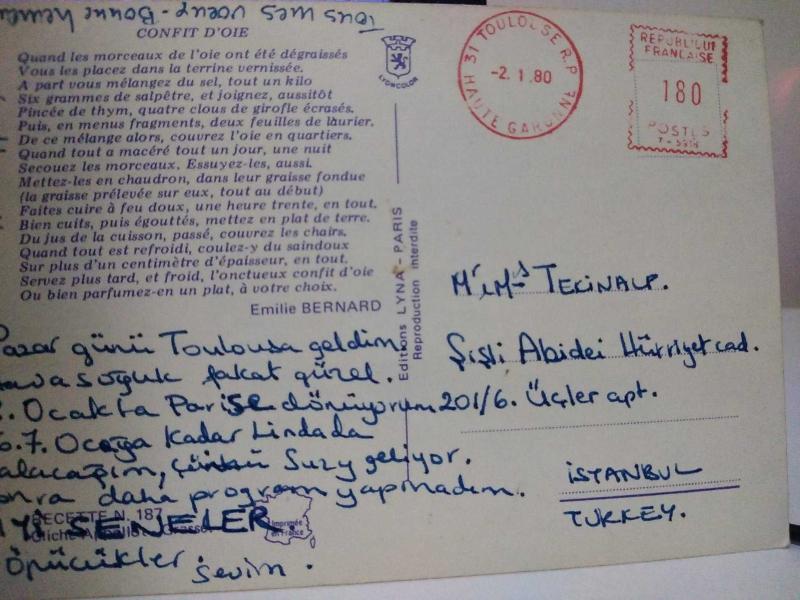 Tous mes voeux - Bonne
CONFIT D'OIE
Quand les morceaux de l'oie ont été dégraissés
Vous les placez dans la terrine vernissée.
A part vous mélangez du sel, tout un kilo
Six grammes de salpêtre, et joignez, aussitôt
Pincée de thym, quatre clous de girofle écrasés.
Puis, en menus fragments, deux feuilles de laurier.
De ce mélange alors, couvrez l'oie en quartiers.
Quand tout a macéré tout un jour, une nuit
Secouez les morceaux. Essuyez-les, aussi.
Mettez-les en chaudron, dans leur graisse fondue
(la graisse prélevée sur eux, tout au début)
Faites cuire à feu doux, une heure trente, en tout.
Bien cuits, puis égouttés, mettez en plat de terre.
Du jus de la cuisson, passé, couvrez les chairs.
Quand tout est refroidi, coulez-y du saindoux
Sur plus d'un centimètre d'épaisseur, en tout.
Servez plus tard, et froid, l'onctueux confit d'oie
Ou bien parfumez-en un plat, à votre choix.
Emilie BERNARD
LYONCOLOR
Editions LYNA - PARIS
Reproduction interdite
31 TOULOUSE R.P
-2.1.80
HAUTE GARONNE
REPUBLIQUE
FRANCAISE
180
POSTES
Pazar günü Toulousa geldim.
Hava soğuk fakat güzel.
Ocakta Parise dönüyorum
7. Ocağa kadar Lindada
kalacağım, çünkü Suzy geliyor.
Sonra daha program yapmadım.
İYİ SENELER.
öpücükler Sevim.
RECETTE N. 187
Imprimée
en France
M' M's TEKİNALP.
Şişli Abidei Hürriyet cad.
201/6. Üçler apt.
İSTANBUL
TURKEY.